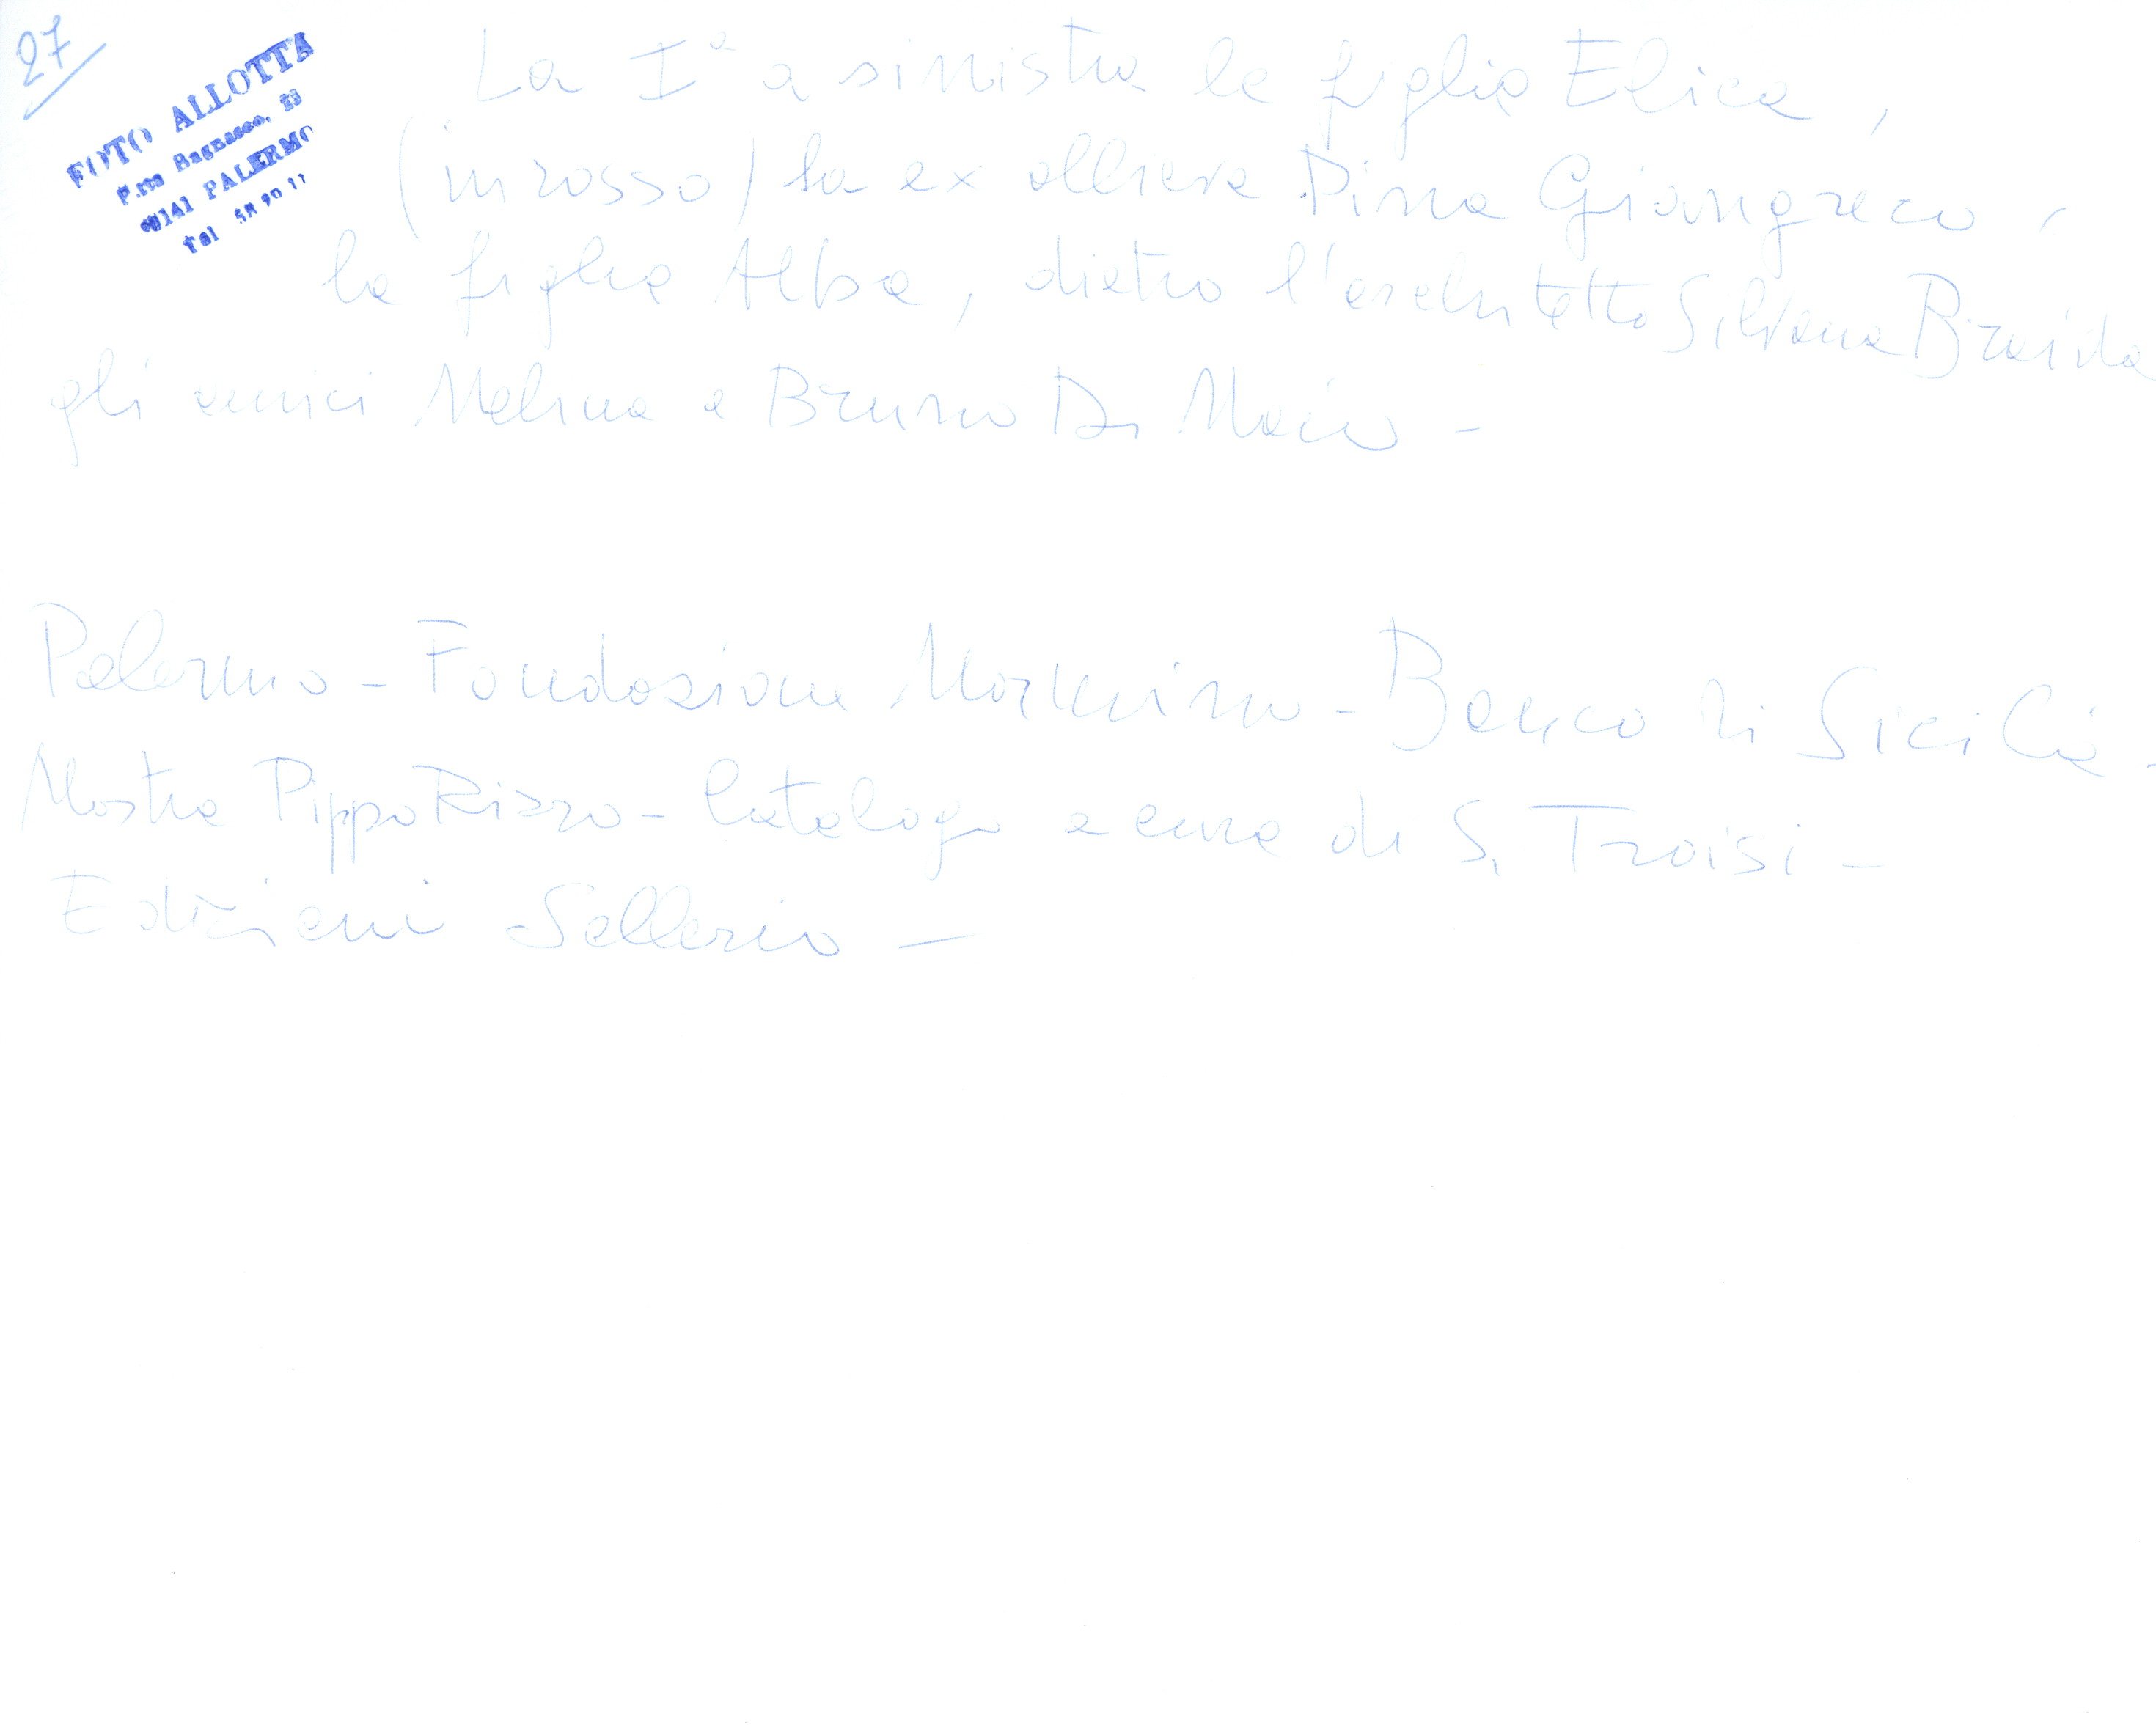 27
FOTO ALLOTTA
P.zza Bagnasco, 23
90141 PALERMO
Tel 58 90 11
La Iª a sinistra la figlia Elica,
(in rosso) la ex allieva Pina Giangreco,
la figlia Alba, dietro l'architetto Silvana Braida
gli amici Melina e Bruno Di Maio -
Palermo - Fondazione Mormino - Banco di Sicilia -
Mostra Pippo Rizzo - Catalogo a cura di S. Troisi -
Edizioni Sellerio -